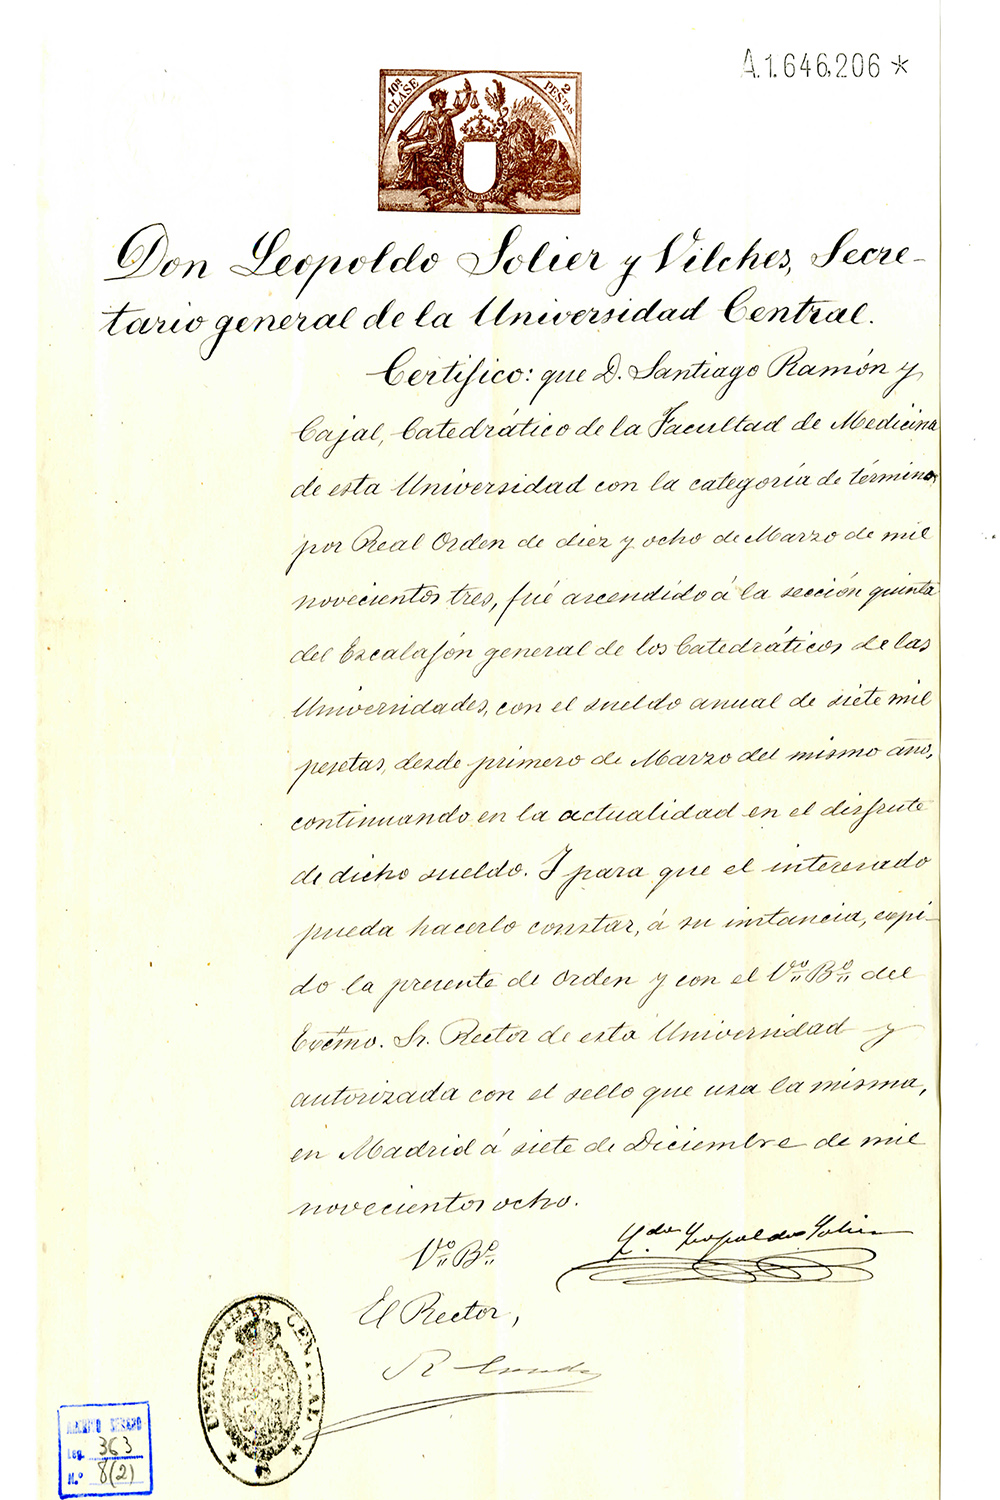 A.1.646,206 *
10ª CLASE
2 PESTAS
Don Leopoldo Solier y Vilches, Secre-
tario general de la Universidad Central.
Certifico: que D. Santiago Ramón y
Cajal, Catedrático de la Facultad de Medicina
de esta Universidad con la categoría de término,
por Real Orden de diez y ocho de Marzo de mil
novecientos tres, fué ascendido á la sección quinta
del Escalafón general de los Catedráticos de las
Universidades, con el sueldo anual de siete mil
pesetas, desde primero de Marzo del mismo año,
continuando en la actualidad en el disfrute
de dicho sueldo. Y para que el interesado
pueda hacerlo constar, á su instancia, expi-
do la presente de orden y con el Vº Bº del
Excmo. Sr. Rector de esta Universidad y
autorizada con el sello que usa la misma,
en Madrid á siete de Diciembre de mil
novecientos ocho.
Ldo. Leopoldo Solier
Vº Bº
El Rector,
R
UNIVERSIDAD CENTRAL
ARCHIVO
Leg. 363
N.º 8(2)